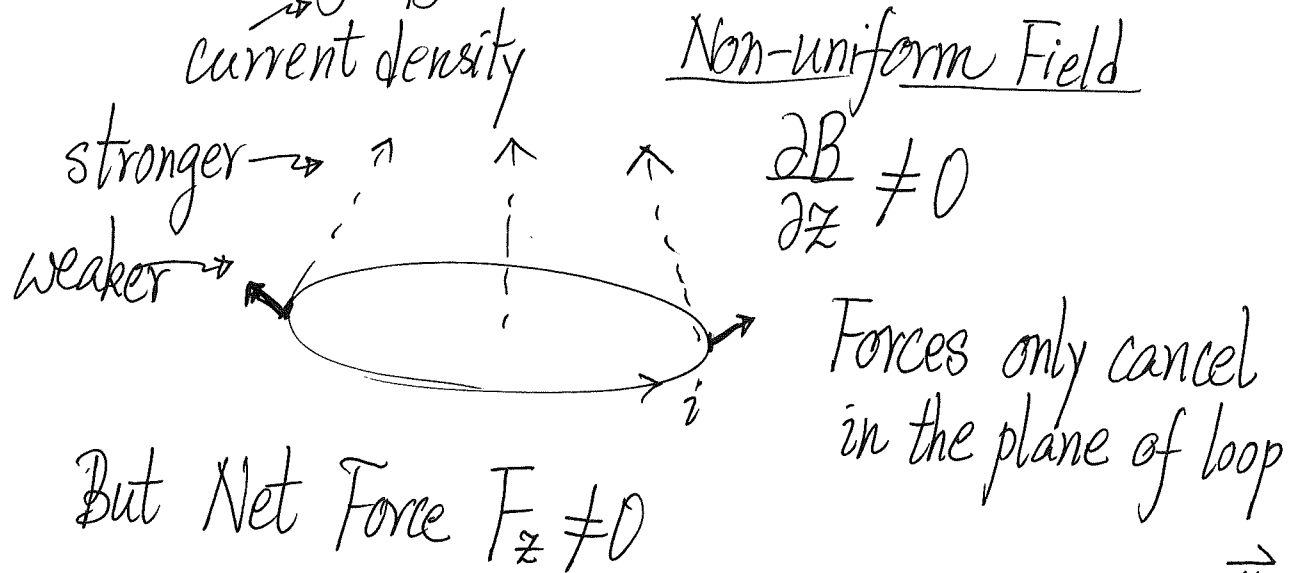 current density
Non-uniform Field
stronger
∂B/∂z ≠ 0
weaker
Forces only cancel
in the plane of loop
i
But Net Force F_z ≠ 0